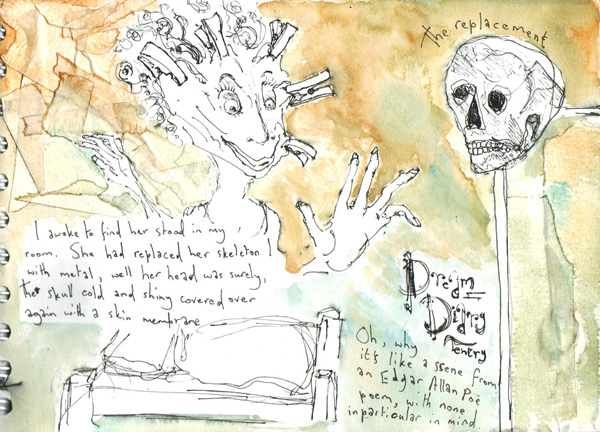 the replacement
I awoke to find her stood in my
room. She had replaced her skeleton
with metal, well her head was surely,
the skull cold and shiny covered over
again with a skin membrane
Dream
Diary
Tentry
Oh, why
it's like a sscene from
an Edgar Allan Poe
poem, with none
in particular in mind.